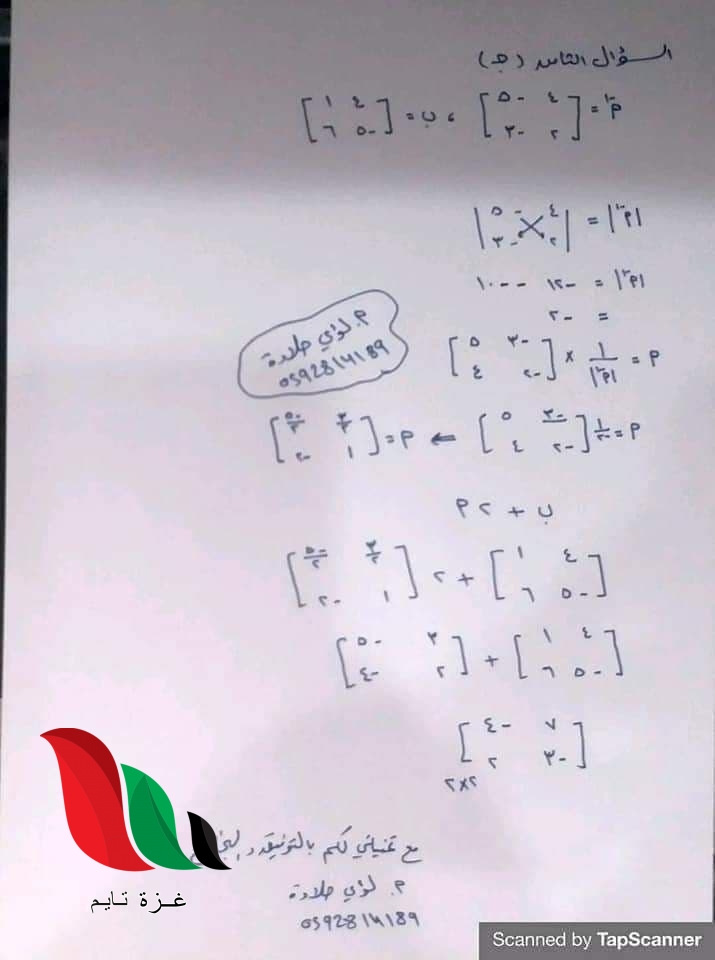 السؤال الثامن (جـ)
م⁻¹ = [٤ -٥ ; ٢ -٣] ، ب = [٤ ١ ; -٥ ٦]
|م⁻¹| = |٤ -٥ ; ٢ -٣|
|م⁻¹| = -١٢ - -١٠
= -٢
م = ١/|م⁻¹| × [-٣ ٥ ; -٢ ٤]
م. لؤي حلادة
0592814189
م = ١/-٢ [-٣ ٥ ; -٢ ٤] ← م = [٣/٢ -٥/٢ ; ١ -٢]
ب + ٢م
[٤ ١ ; -٥ ٦] + ٢ [٣/٢ -٥/٢ ; ١ -٢]
[٤ ١ ; -٥ ٦] + [٣ -٥ ; ٢ -٤]
[٧ -٤ ; -٣ ٢] ٢×٢
مع تمنياتي لكم بالتوفيق
م. لؤي حلادة
0592814189
غزة تايم
Scanned by TapScanner